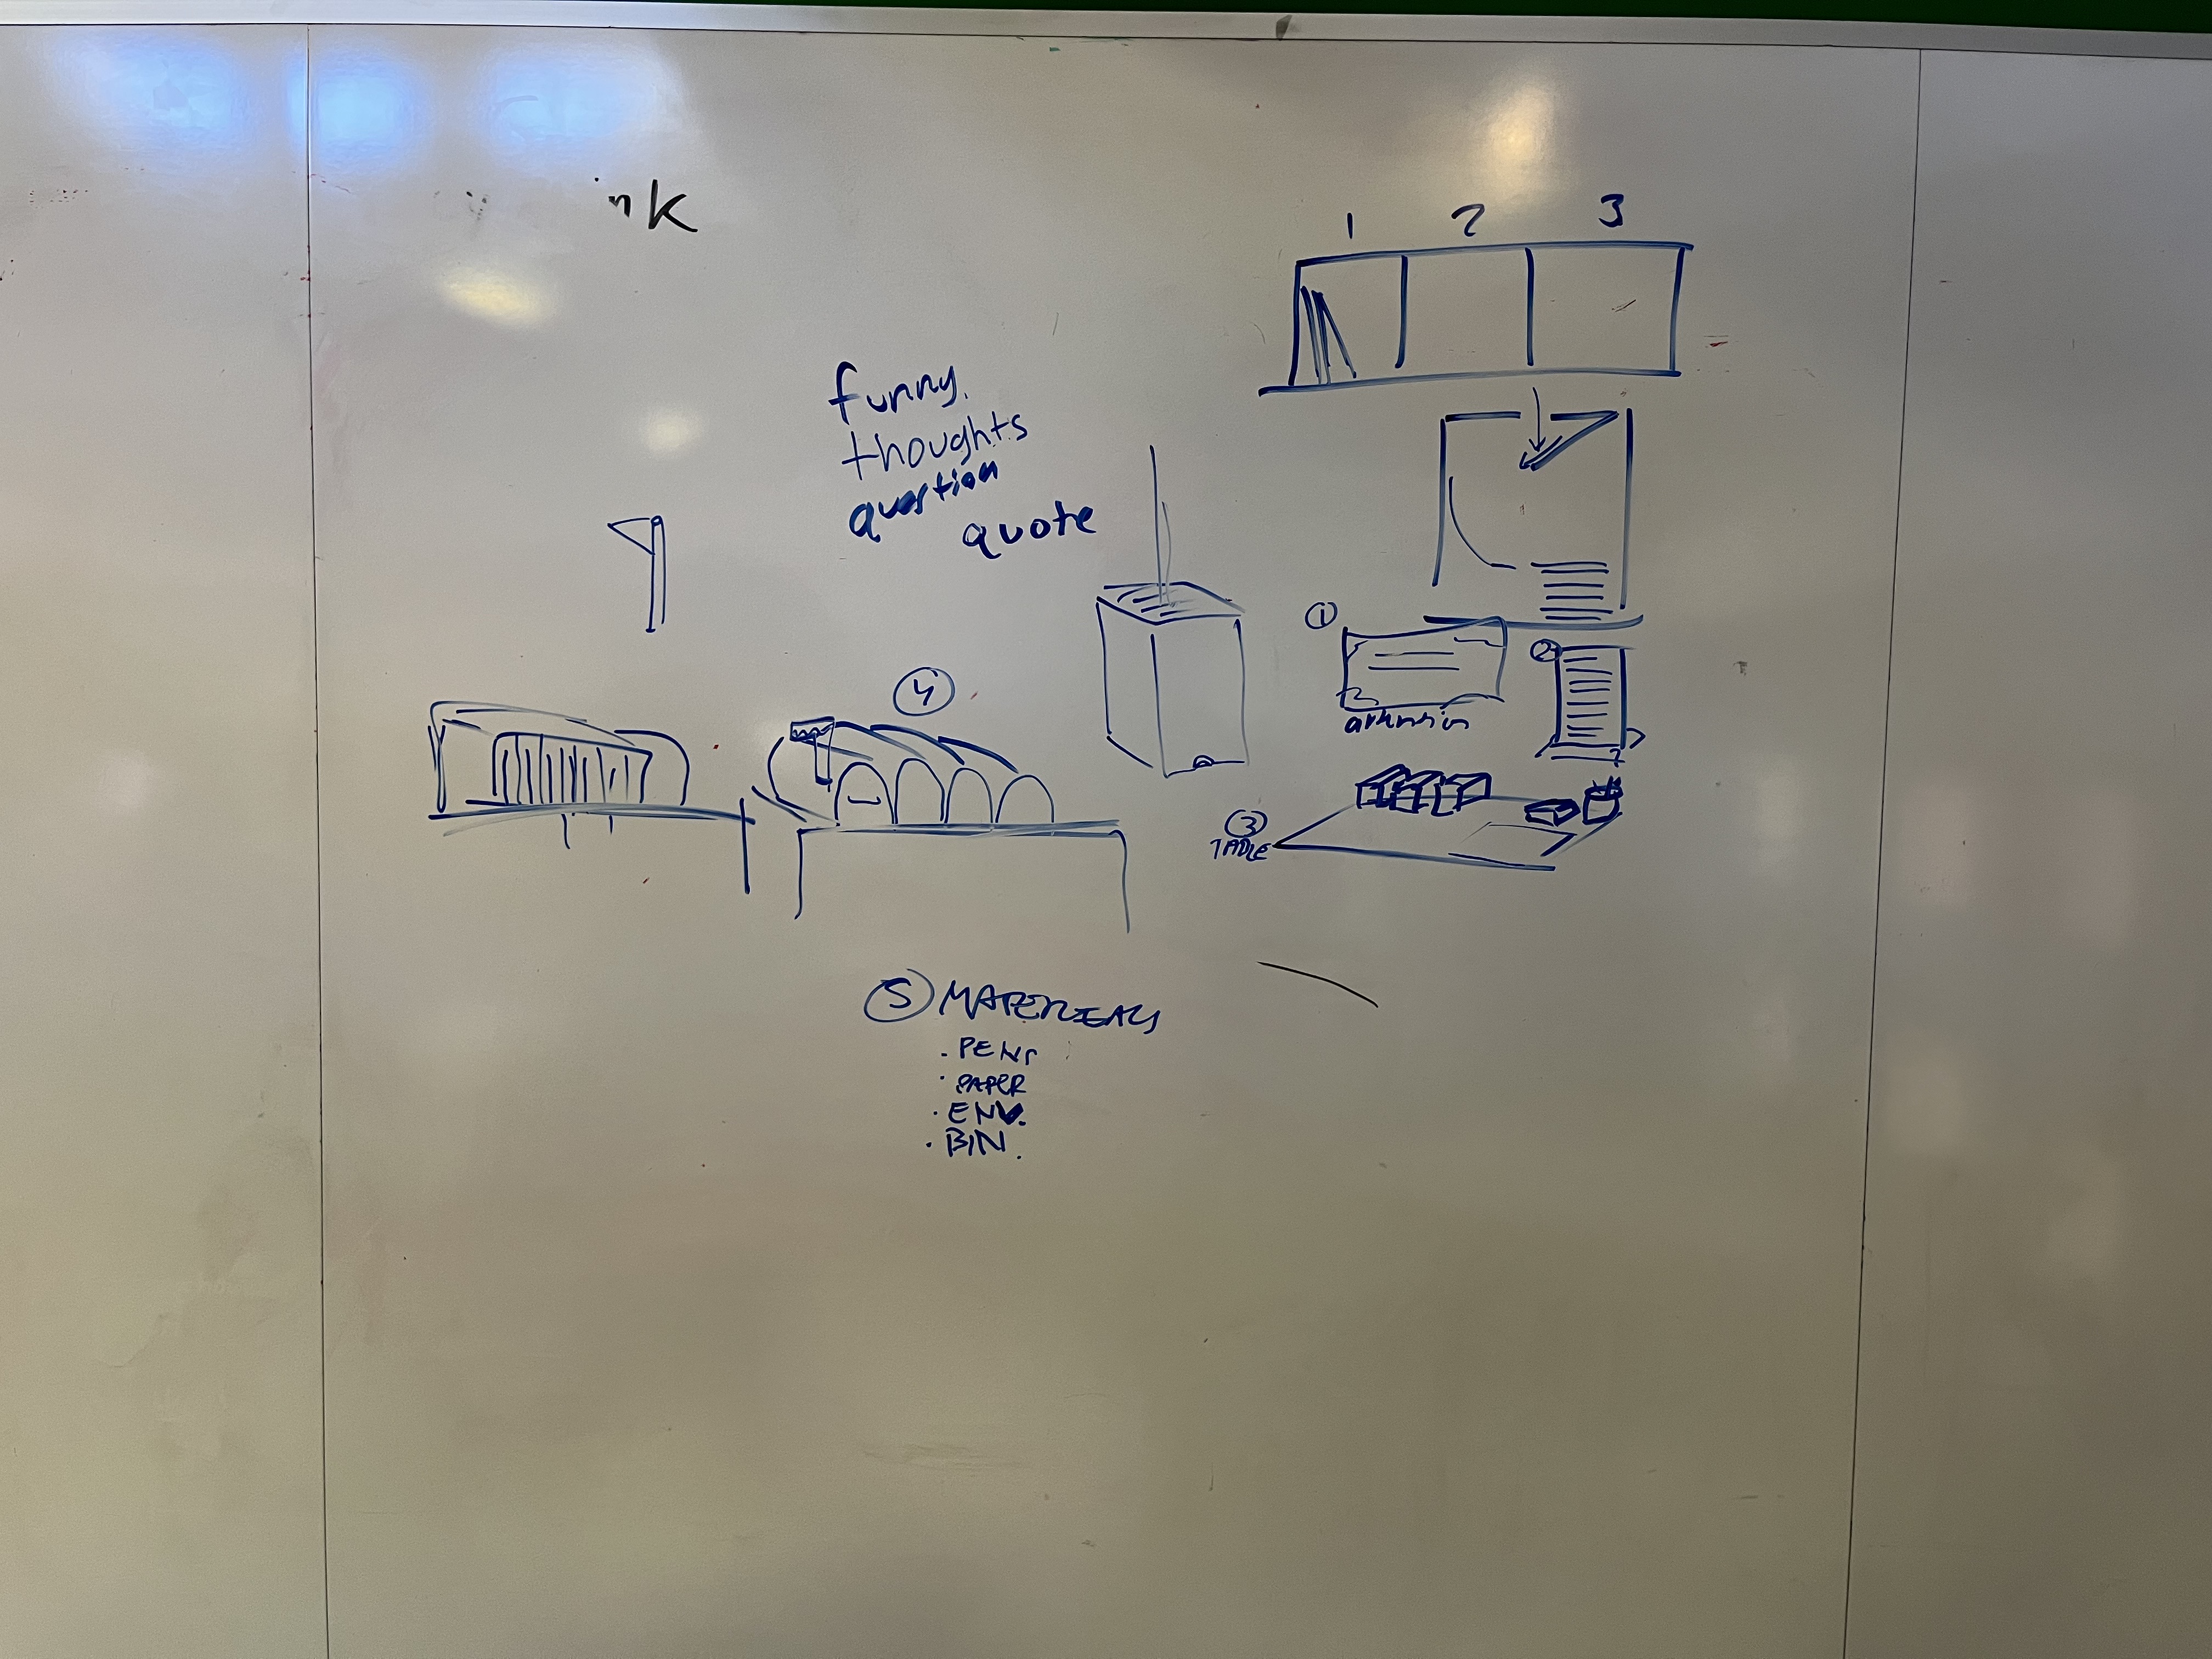 nk
1 2 3
funny
thoughts
question
quote
1
2
4
3
TABLE
5 MATERIALS
· PENS
· PAPER
· ENV.
· BIN.